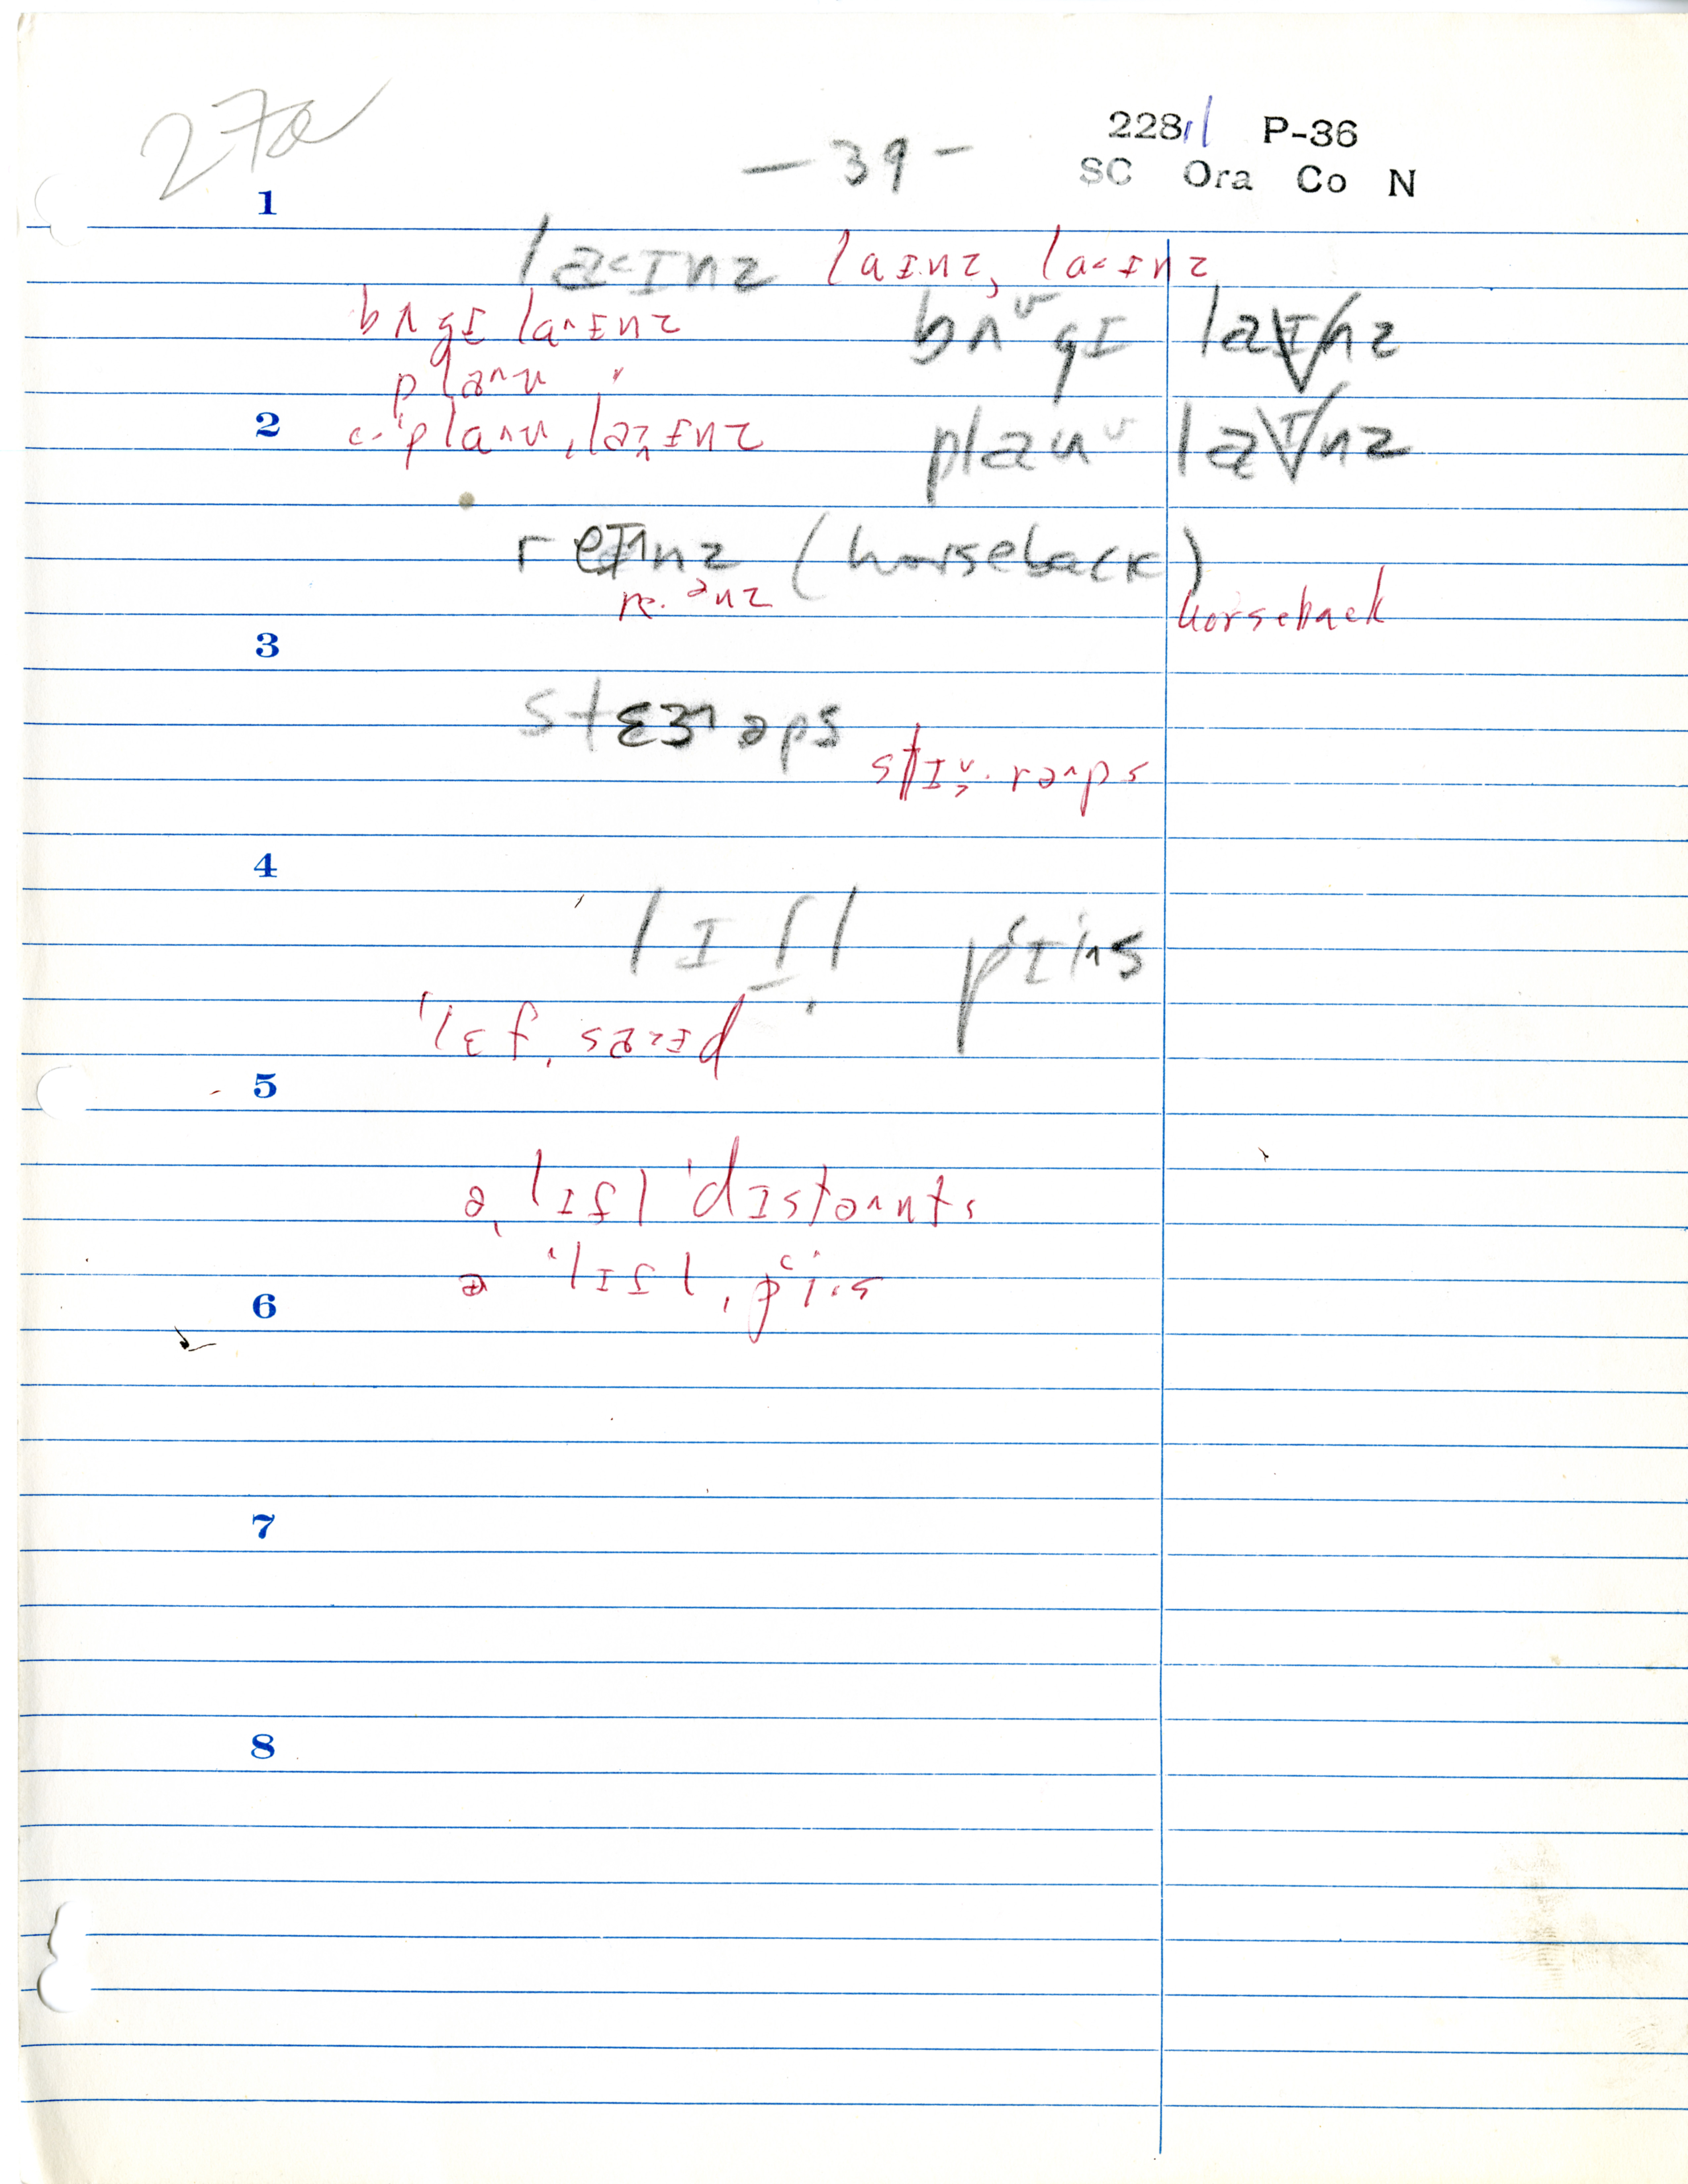 27a
- 39 -
228 P-36
SC Ora Co N
1
la<ɪnz laɪnz, la<ɪnz
bʌgɪ la^ɪnz bʌ˅gɪ laɪnz
pla^u "
2 pla^u, laɪnz plau˅ laɪnz
reɪnz (horseback)
horseback
3
stɛɜ^əps
stɪ ̬rə^ps
4
lɪſl pʻɪ^s
ˈlɛf, saɪd
5
ə lɪſl ˈdɪstə^nts
ə ˈlɪſl, pʻi·s
6
7
8